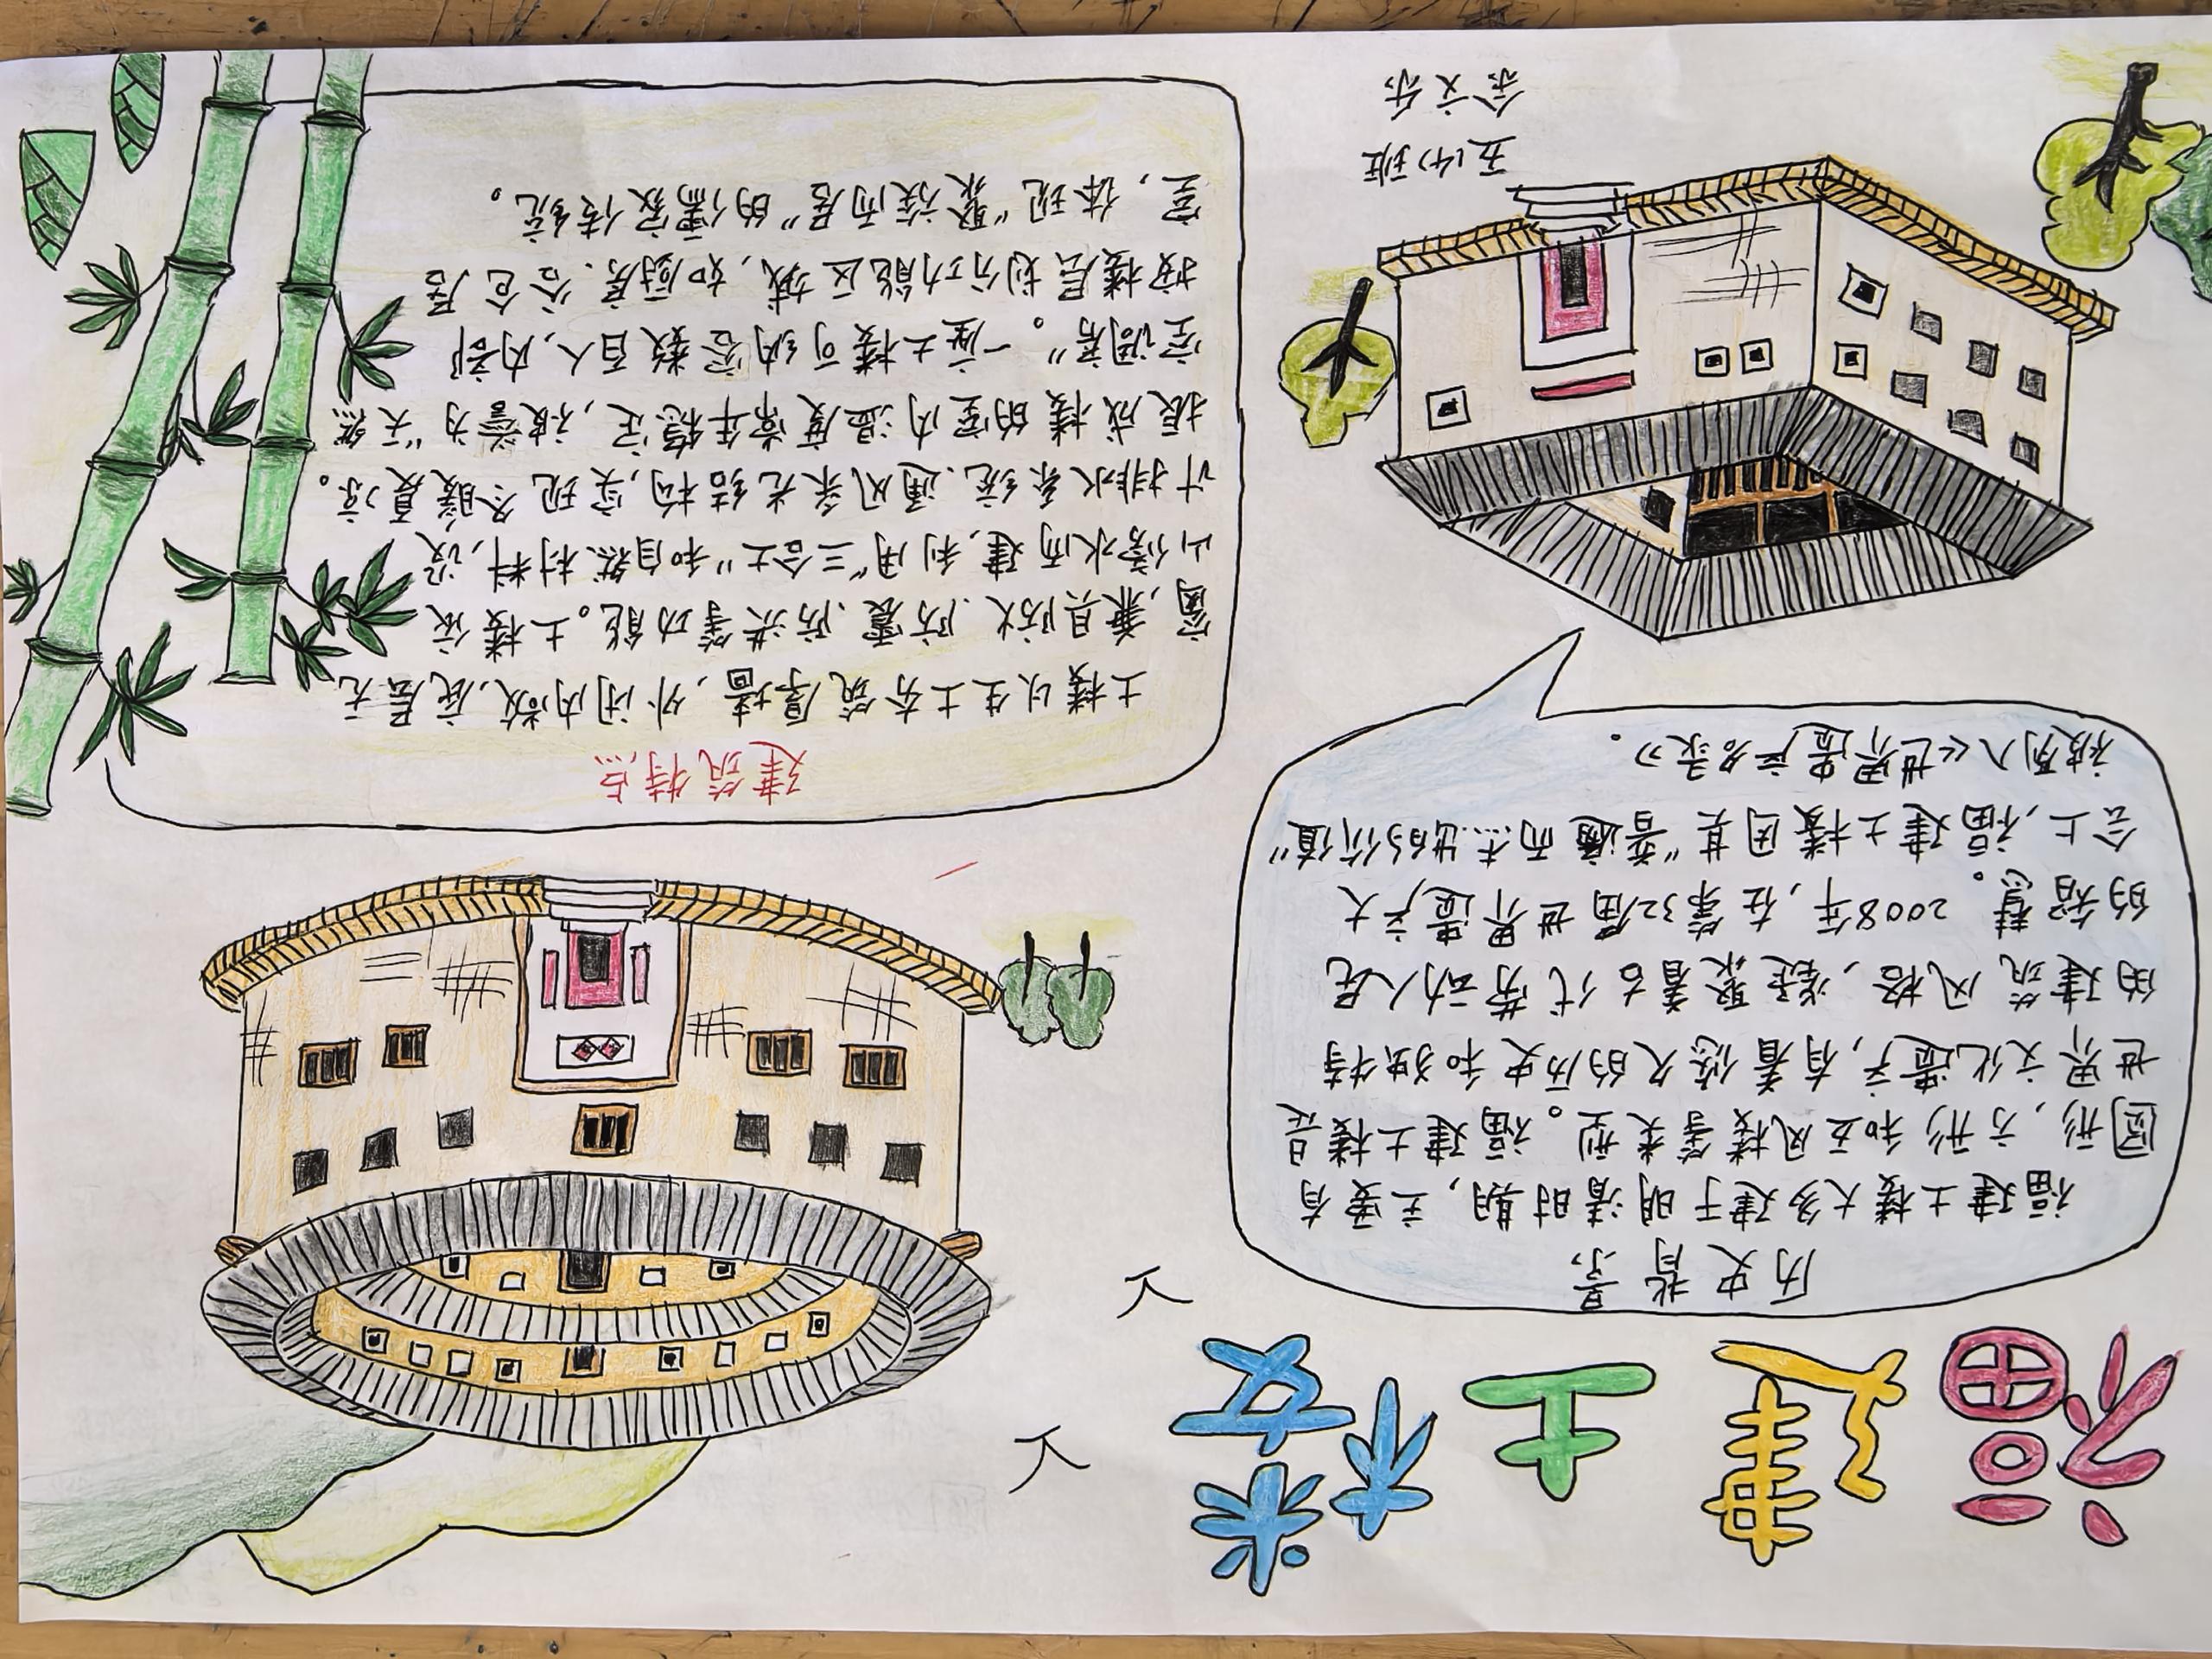 福建土楼
历史背景
福建土楼大多建于明清时期，主要有
圆形，方形和五凤楼等类型。福建土楼是
世界文化遗产，有着悠久的历史和独特
的建筑风格，凝聚着古代劳动人民
的智慧。2008年，在第32届世界遗产大
会上，福建土楼因其“普遍而杰出的价值”
被列入《世界遗产名录》。
建筑特点
土楼以生土夯筑厚墙，外闭内敞，底层无
窗，兼具防火、防震、防洪等功能。土楼依
山傍水而建，利用“三合土”和自然材料，设
计排水系统、通风采光结构，实现冬暖夏凉。
振成楼的室内温度常年稳定，被誉为“天然
空调房”。一座土楼可纳容数百人，内部
按楼层划分功能区域，如厨房、谷仓居
室，体现“聚族而居”的儒家传统。
五(4)班
余文乐